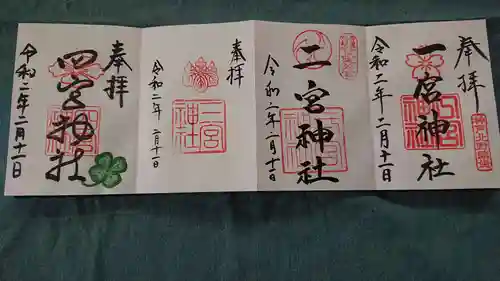 奉拝
一宮神社
令和二年二月十一日
二宮神社
令和二年二月十一日
奉拝
二宮
神社
令和二年二月十一日
奉拝
四宮神社
令和二年二月十一日